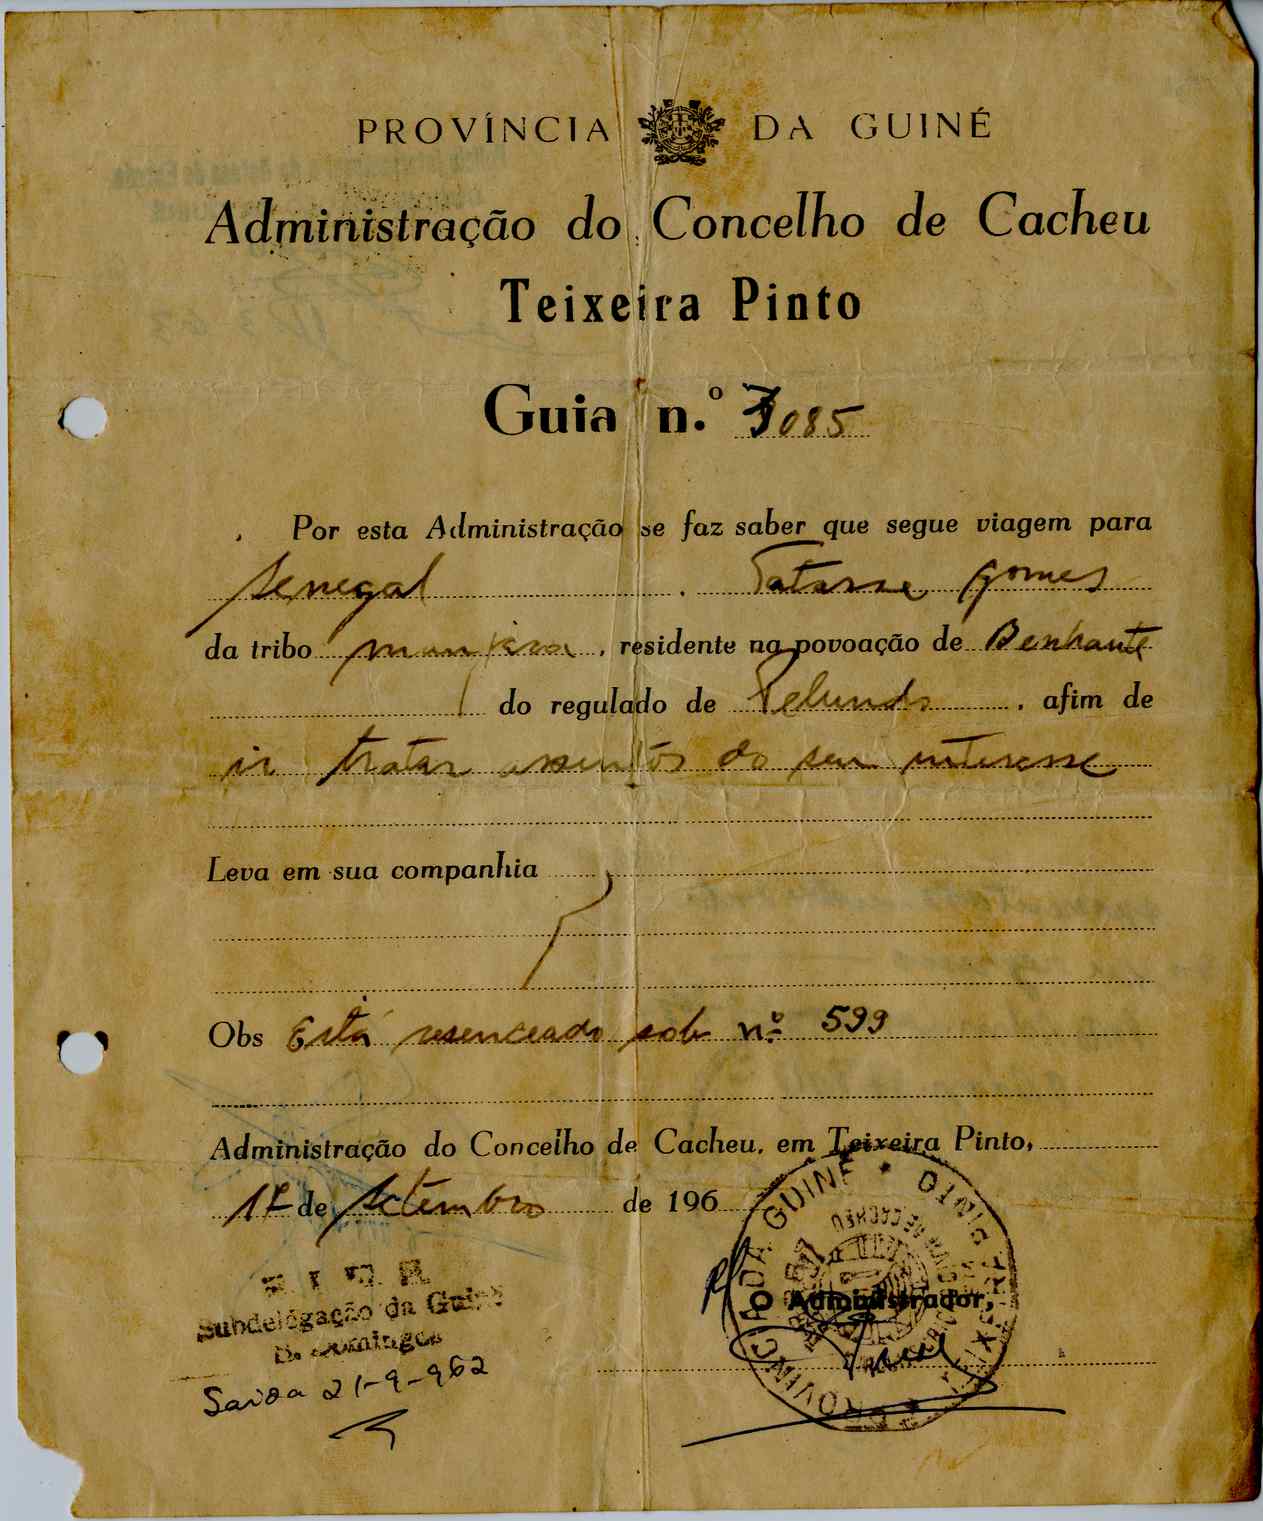 PROVÍNCIA DA GUINÉ
Administração do Concelho de Cacheu
Teixeira Pinto
Guia n.º 7085
Por esta Administração se faz saber que segue viagem para
Senegal. Tatasse Gomes
da tribo manjaca, residente na povoação de Benhante
do regulado de Pelundo, afim de
ir tratar assuntos do seu interesse
Leva em sua companhia
Obs Está resenceado sob nº 599
Administração do Concelho de Cacheu, em Teixeira Pinto,
17 de Setembro de 196
O Administrador,
PROVINCIA DA GUINÉ * TEIXEIRA PINTO
P. I. D. E.
Subdelegação da Guiné
S. Domingos
Saida 21-9-962